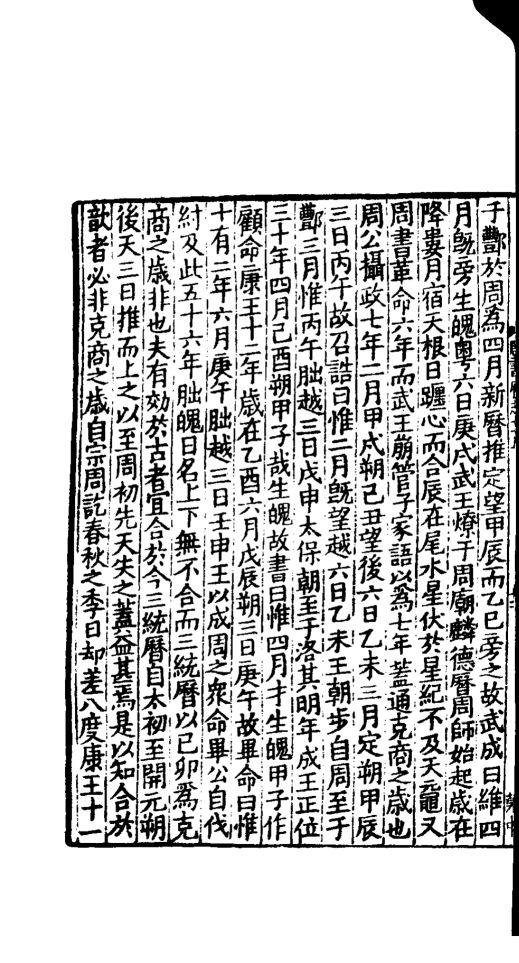 于酆於周爲四月新曆推定望甲辰而乙巳旁之故武成曰維四
月旣旁生魄粵六日庚戌武王燎于周廟麟德曆周師始起歲在
降婁月宿天根日躔心而合辰在尾水星伏於星紀不及天黿又
周書革命六年而武王崩管子家語以爲七年蓋通克商之歲也
周公攝政七年二月甲戌朔己丑望後六日乙未三月定朔甲辰
三日丙午故召誥曰惟二月旣望越六日乙未王朝步自周至于
酆三月惟丙午朏越三日戊申太保朝至于洛其明年成王正位
三十年四月己酉朔甲子哉生魄故書曰惟四月才生魄甲子作
顧命康王十二年歲在乙酉六月戊辰朔三日庚午故畢命曰惟
十有二年六月庚午朏越三日壬申王以成周之衆命畢公自伐
紂及此五十六年朏魄日名上下無不合而三統曆以己卯爲克
商之歲非也夫有効於古者宜合於今三統曆自太初至開元朔
後天三日推而上之以至周初先天失之蓋益甚焉是以知合於
歆者必非克商之歲自宗周訖春秋之季日却差八度康王十一